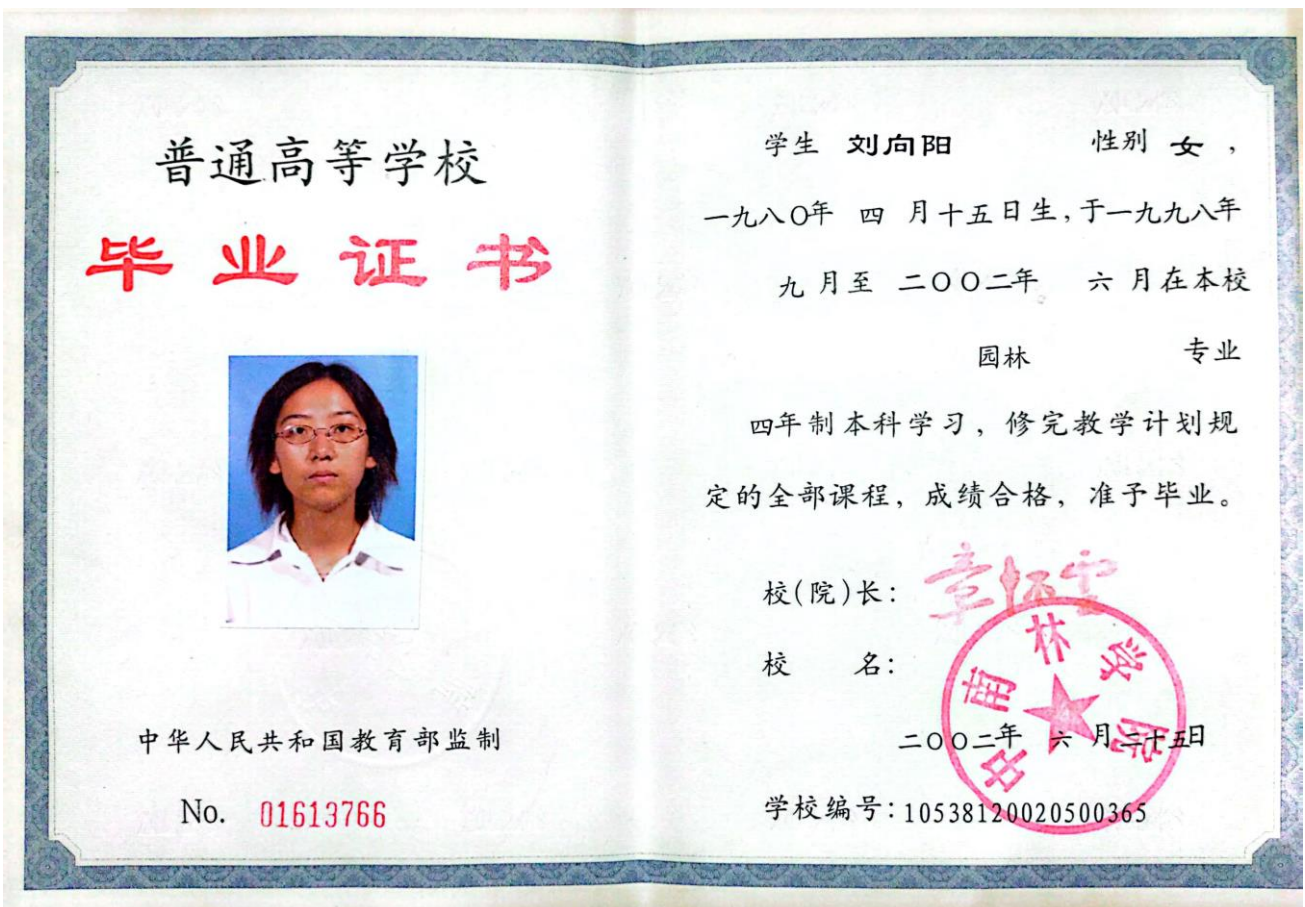 普通高等学校
毕业证书
中华人民共和国教育部监制
No. 01613766
学生 刘向阳 性别 女，
一九八〇年 四 月十五日生，于一九九八年
九月至 二〇〇二年 六 月在本校
园林 专业
四年制本科学习，修完教学计划规
定的全部课程，成绩合格，准予毕业。
校(院)长：
校 名：
中南林学院
二〇〇二年 六 月二十五日
学校编号：10538120020500365